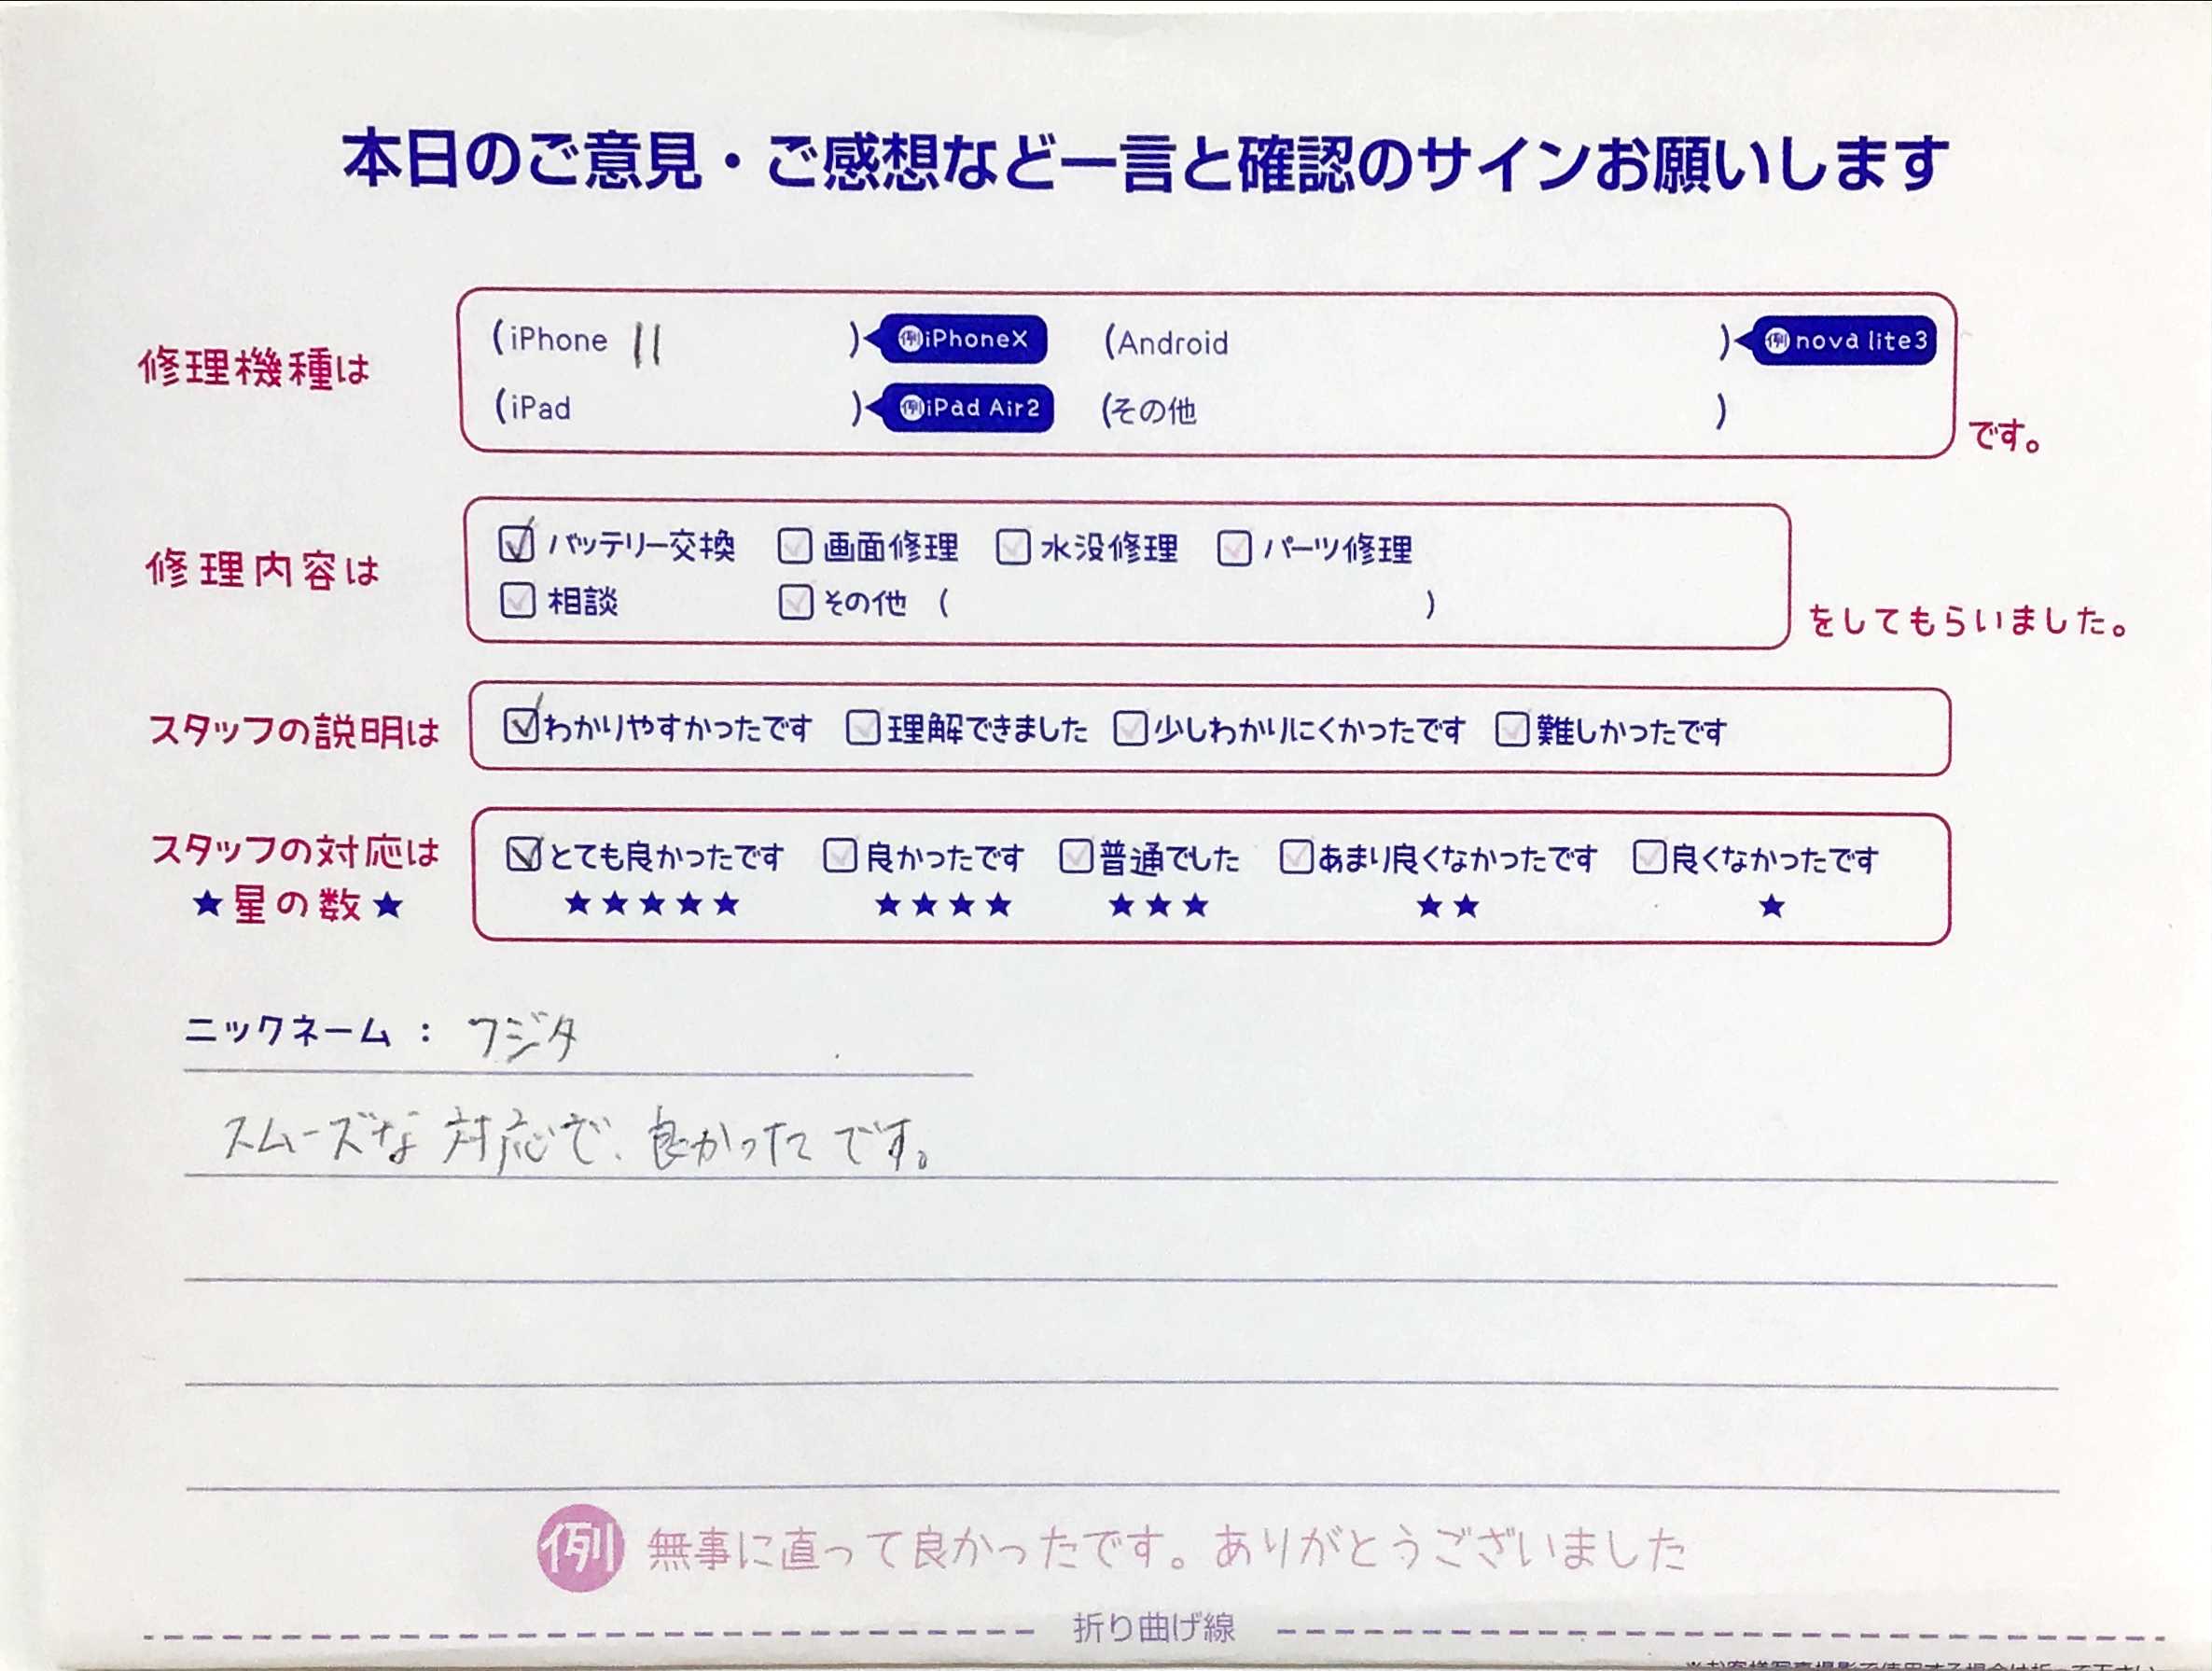 本日のご意見・ご感想など一言と確認のサインお願いします
修理機種は (iPhone 11 ) 例iPhoneX (Android ) 例nova lite3
(iPad ) 例iPad Air2 (その他 ) です。
修理内容は バッテリー交換 画面修理 水没修理 パーツ修理
相談 その他 ( ) をしてもらいました。
スタッフの説明は わかりやすかったです 理解できました 少しわかりにくかったです 難しかったです
スタッフの対応は とても良かったです 良かったです 普通でした あまり良くなかったです 良くなかったです
★星の数★ ★★★★★ ★★★★ ★★★ ★★ ★
ニックネーム : フジタ
スムーズな対応で、良かったです。
例 無事に直って良かったです。ありがとうございました
折り曲げ線